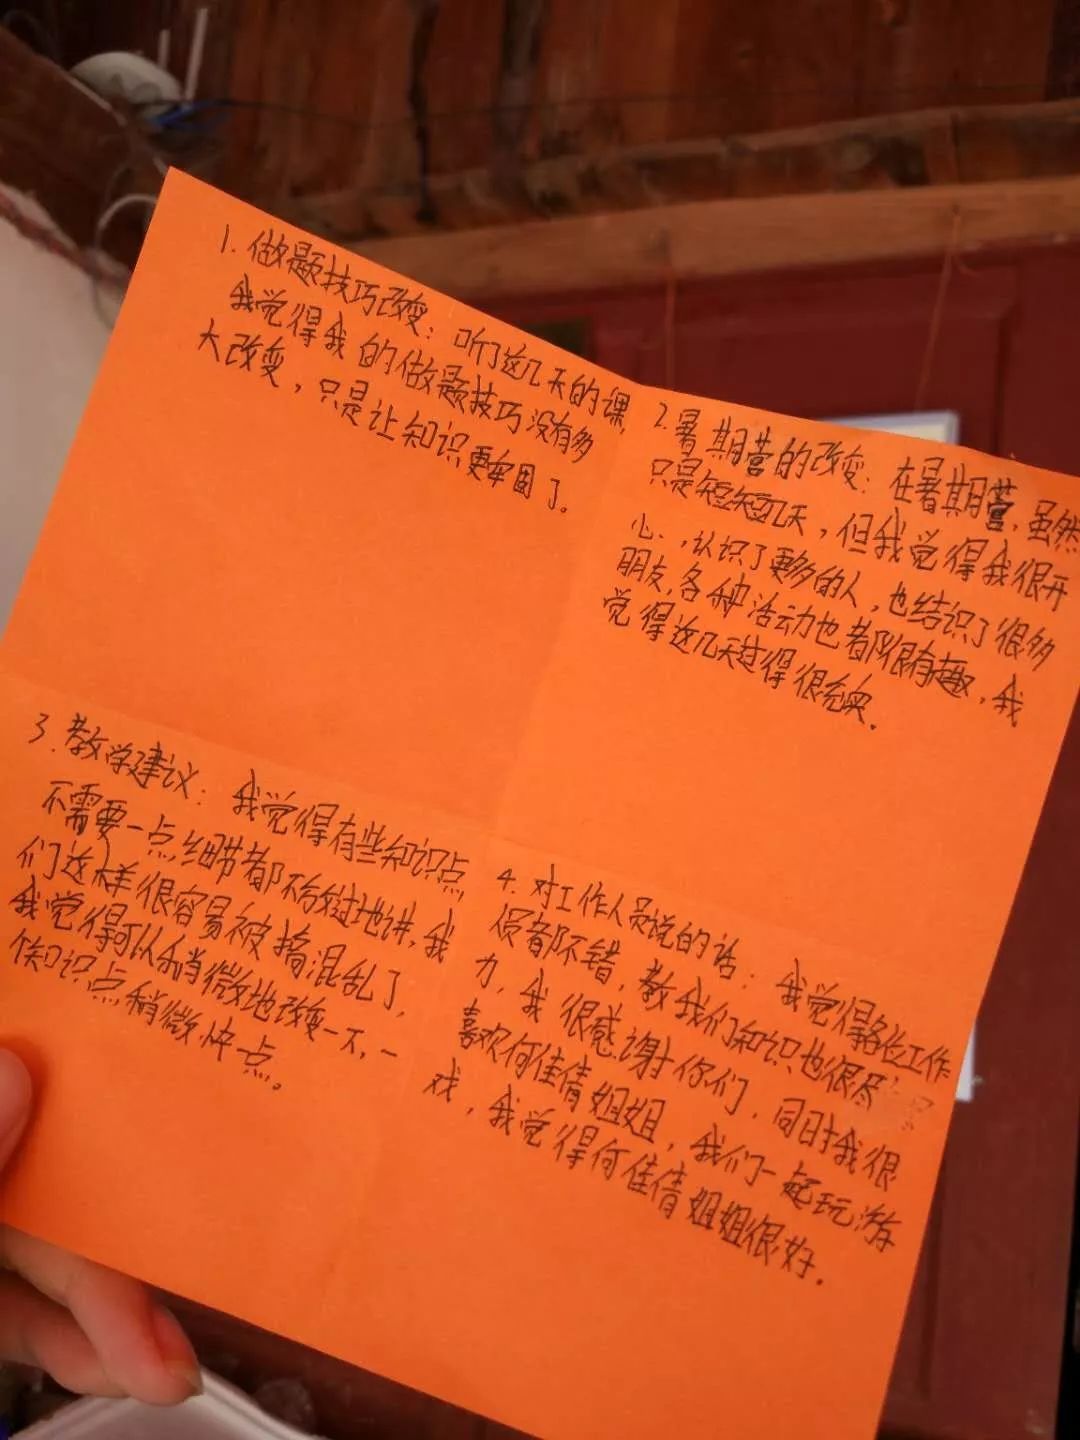 1. 做题技巧改变：听了这几天的课，
我觉得我的做题技巧没有多
大改变，只是让知识更牢固了。
2. 暑期营的改变：在暑期营，虽然
只是短短几天，但我觉得我很开
心，认识了更多的人，也结识了很多
朋友，各种活动也都很有趣，我
觉得这几天过得很充实．
3. 教学建议：我觉得有些知识点
不需要一点细节都不放过地讲，我
们这样很容易被搞混乱了，
我觉得可以稍微地改变一下，一
些知识点稍微快一点。
4. 对工作人员说的话：我觉得各位工作
人员都不错，教我们知识也很尽
力，我很感谢你们，同时我很
喜欢何佳倩姐姐，我们一起玩游
戏，我觉得何佳倩姐姐很好．